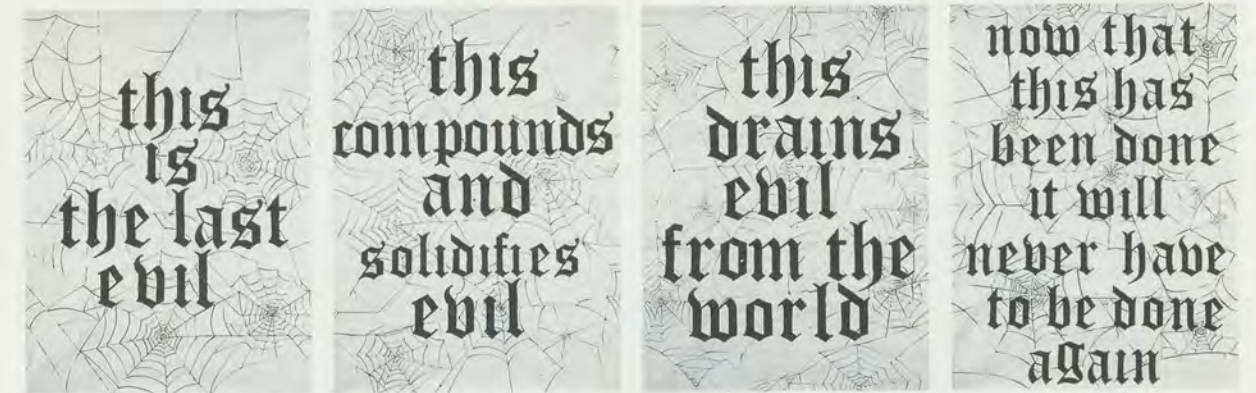 this
is
the last
evil
this
compounds
and
solidifies
evil
this
drains
evil
from the
world
now that
this has
been done
it will
never have
to be done
again